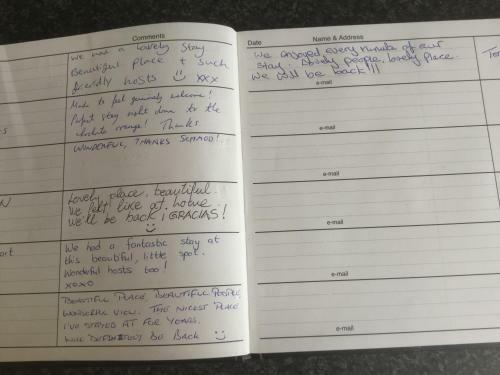 Comments
We had a lovely stay
Beautiful place + such
friendly hosts xxx
Made to feel genuinely welcome!
Perfect stay right down to the
absolute orange! Thanks
WONDERFUL, THANKS
Lovely place, beautiful.
We felt like at home
We'll be back ¡GRACIAS!
We had a fantastic stay at
this beautiful, little spot.
Wonderful hosts too!
xoxo
BEAUTIFUL PLACE, BEAUTIFUL PEOPLE,
WONDERFUL VIEW. THE NICEST PLACE
I'VE STAYED AT FOR YEARS.
WILL DEFINITELY BE BACK
Date Name & Address
We enjoyed every minute of our
stay. Lovely people, lovely place.
We will be back!!!
e-mail
e-mail
e-mail
e-mail
e-mail
e-mail